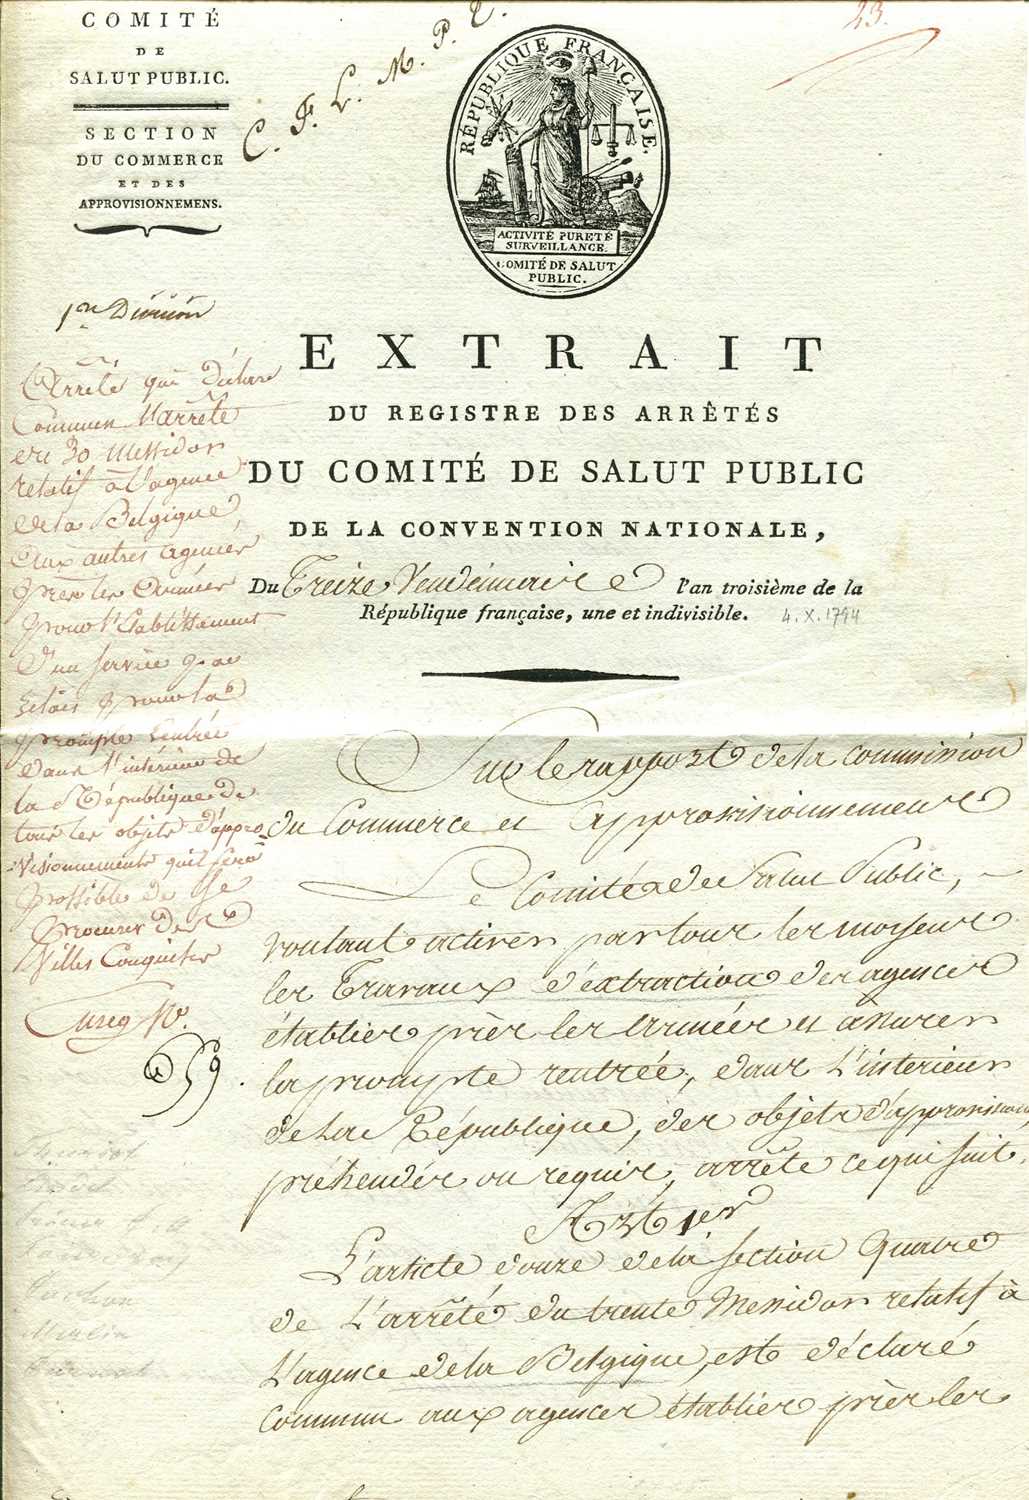 COMITÉ
DE
SALUT PUBLIC.
SECTION
DU COMMERCE
ET DES
APPROVISIONNEMENS.
C. F. L. M. P. T.
23.
RÉPUBLIQUE FRANÇAISE.
ACTIVITÉ PURETÉ
SURVEILLANCE.
COMITÉ DE SALUT
PUBLIC.
1re Division
EXTRAIT
DU REGISTRE DES ARRÊTÉS
DU COMITÉ DE SALUT PUBLIC
DE LA CONVENTION NATIONALE,
Du Treize Vendémiaire l'an troisième de la
République française, une et indivisible. 4.X.1794
Arrêté qui déclare
Commun l'arrêté
du 30 Messidor
relatif à l'agence
de la Belgique
aux autres agences
près les Armées
pour l'Etablissement
d'un service
relais pour la
prompte rentrée
dans l'intérieur de
la République de
tous les objets d'appro
visionnements qu'il sera
possible de se
procurer des
Villes Conquises
59.
Sur le rapport de la commission
du Commerce et approvisionnement
Le Comité de Salut Public,
voulant activer par tous les moyens
les Travaux d'extraction des agences
établies près les armées et assurer
la prompte rentrée, dans l'intérieur
de la République, des objets d'approvision,
préhendés ou requis, arrête ce qui suit.
Art 1er
L'article douze de la section Quatre
de l'arrêté du trente Messidor relatif à
L'agence de la Belgique, est déclaré
commun aux agences établies près les
Merlin